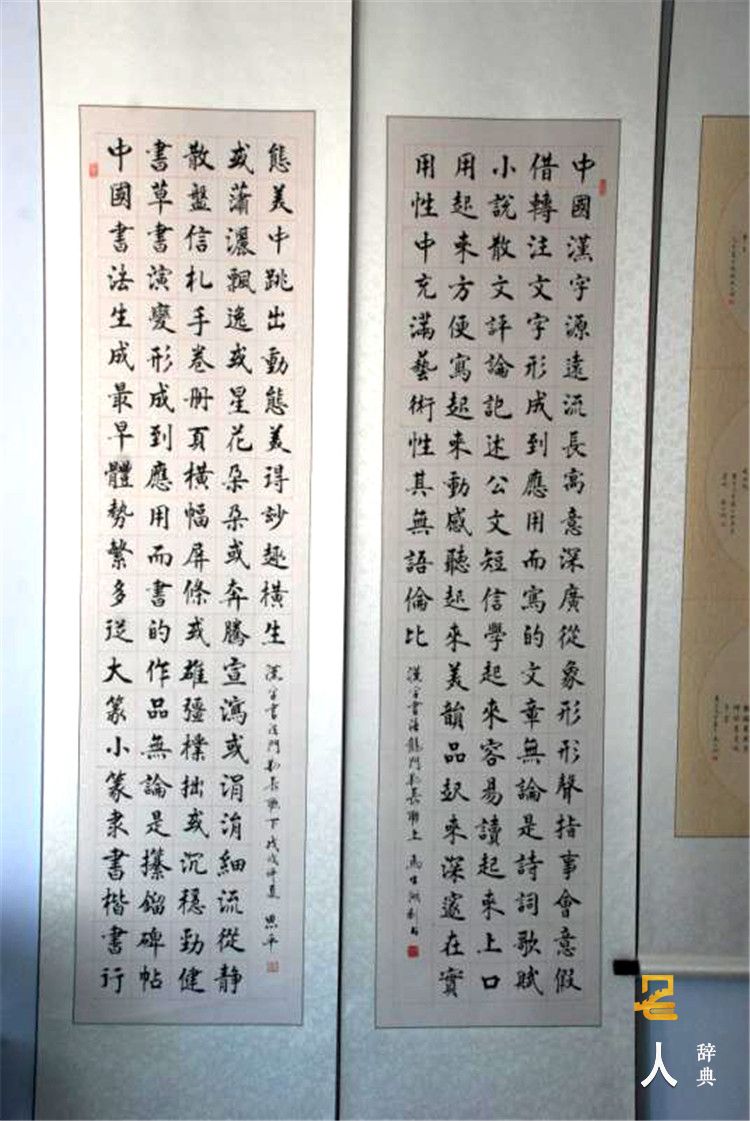 中國漢字源遠流長寓意深廣從象形形聲指事會意假
借轉注文字形成到應用而寫的文章無論是詩詞歌賦
小說散文評論記述公文短信學起來容易讀起來上口
用起來方便寫起來動感聽起來美韻品起來深邃在實
用性中充滿藝術性其無語倫比
漢字書法龍門對長聯上
中國書法生成最早體勢繁多從大篆小篆隶書楷書行
書草書演變形成到應用而書的作品無論是攥鎦碑帖
散盤信札手卷册頁橫幅屏條或雄彊樸拙或沉穩勁健
或蕭灑飄逸或星花朵朵或奔騰宣瀉或涓涓細流從靜
態美中跳出動態美得妙趣橫生
漢字書法門對長聯下戊戌仲夏 思平
人
辞典